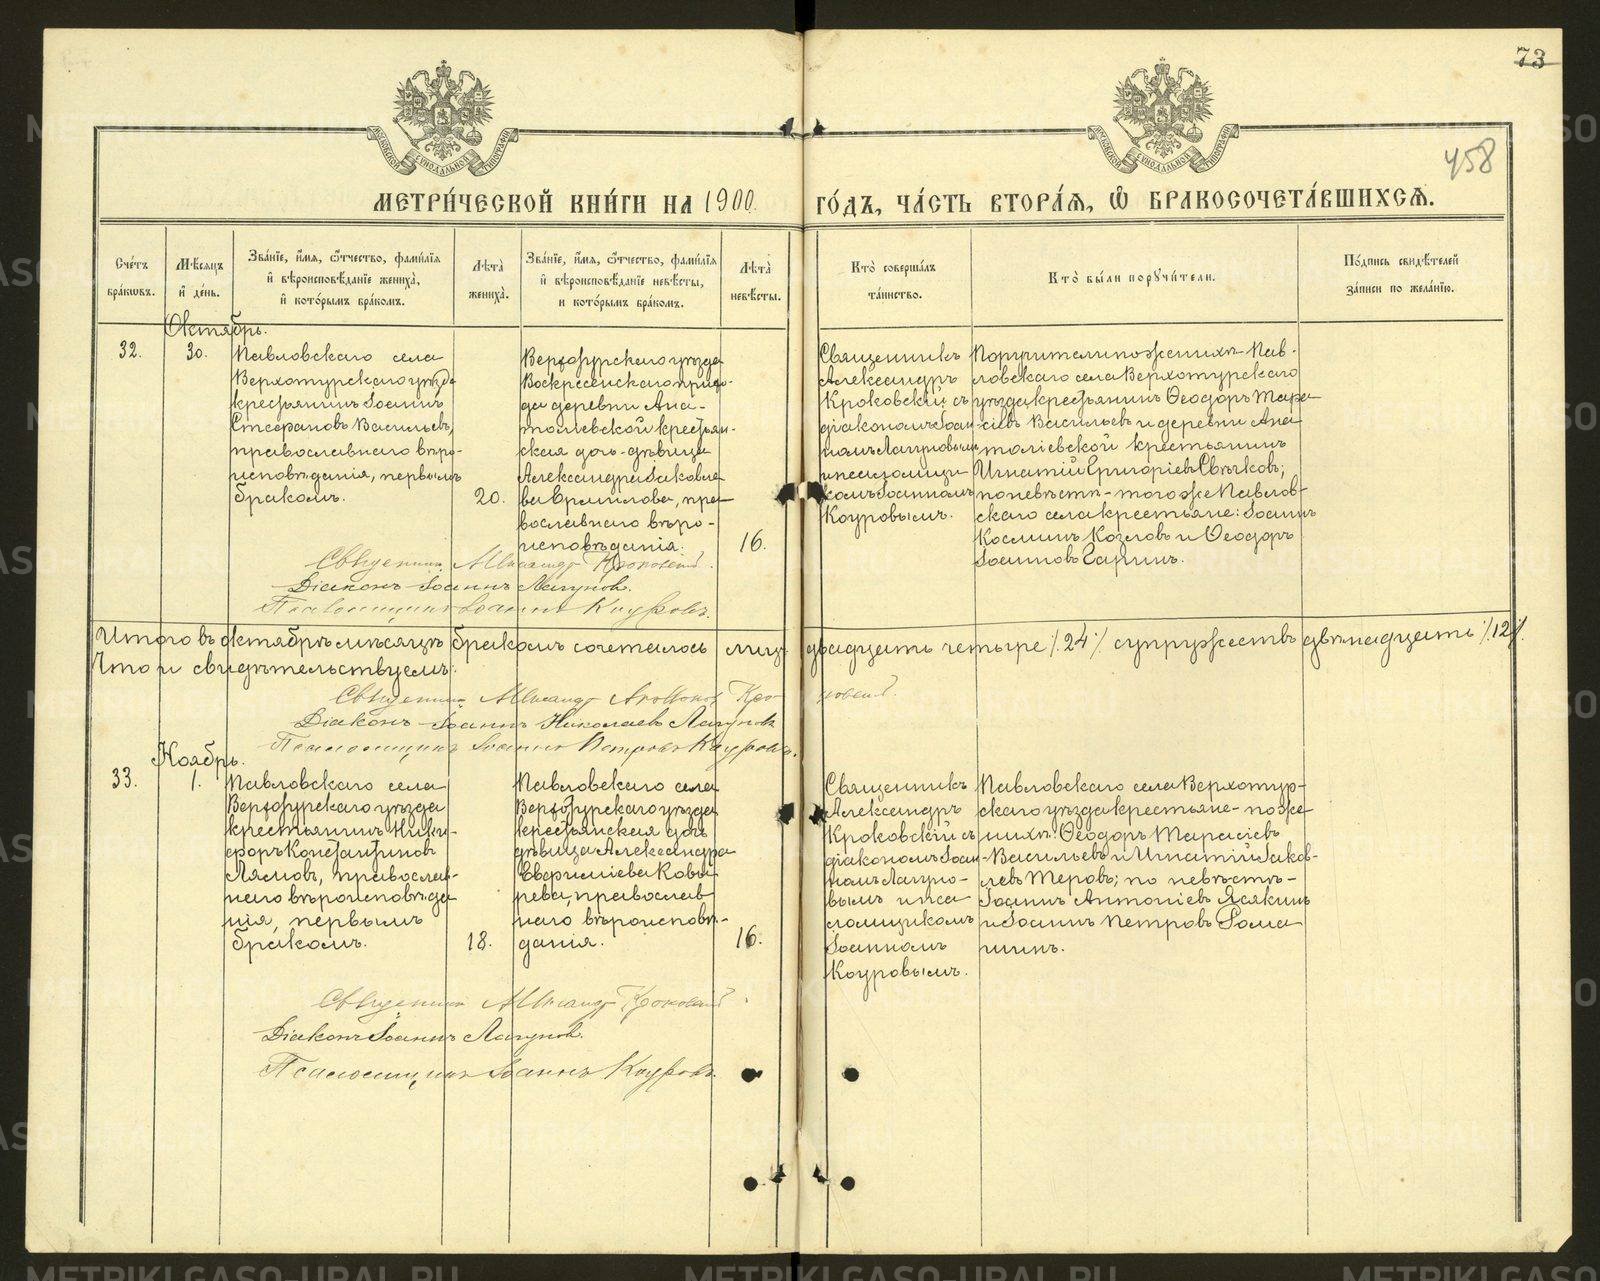 73
458
МЕТРИ́ЧЕСКОЙ КНИ́ГИ НА 1900. ГО́ДЪ, ЧА́СТЬ ВТОРА́Я, Ѡ БРАКОСОЧЕТА́ВШИХСѦ.
Сче́тъ бра́кѡвъ.
Мѣ́сяцъ и де́нь.
Зва́нїе, и́мя, ѻ҆́тчество, фами́лїя и вѣроисповѣ́данїе жениха̀, и кото́рымъ бра́комъ.
Лѣта̀ жениха̀.
Зва́нїе, и́мя, ѻ҆́тчество, фами́лїя и вѣроисповѣ́данїе невѣ́сты, и кото́рымъ бра́комъ.
Лѣта̀ невѣ́сты.
Кто̀ соверша́лъ та́инство.
Кто̀ бы́ли порꙋчи́тели.
По́дпись свидѣ́телей за́писи по жела́нїю.
Октябрь.
32.
30.
Павловскаго села
Верхотурскаго уѣзда
крестьянинъ Іоаннъ
Стефановъ Васильевъ,
православнаго вѣро-
исповѣданія, первымъ
бракомъ.
20.
Верхотурскаго уѣзда
Воскресенскаго прихо-
да деревни Ана-
толіевской крестьян-
ская дочь-дѣвица
Александра Іаковле-
ва Ермилова, пра-
вославнаго вѣро-
исповѣданія.
16.
Священникъ
Александръ
Кроковскій съ
діакономъ Іоан-
номъ Лагуновымъ
и псаломщи-
комъ Іоанномъ
Кауровымъ.
Поручители по женихѣ Пав-
ловскаго села Верхотурскаго
уѣзда крестьянинъ Ѳеодоръ Тара-
сіевъ Васильевъ и деревни Ана-
толіевской крестьянинъ
Игнатій Григоріевъ Свѣчковъ;
по невѣстѣ - того же Павлов-
скаго села крестьяне: Іоаннъ
Космин Козловъ и Ѳеодоръ
Іоанновъ Гаринъ.
Священникъ Александръ Кроковскій.
Діаконъ Іоаннъ Лагуновъ.
Псаломщикъ Іоаннъ Кауровъ.
Итого въ октябрѣ мѣсяцѣ бракомъ сочеталось лицъ двадцать четыре /.24/. супружествъ двѣнадцать /.12/.
Что и свидѣтельствуемъ:
Священникъ Александръ Кроковскій.
Діаконъ Іоаннъ Николаевъ Лагуновъ
Псаломщикъ Іоаннъ Петровъ Кауровъ.
Ноябрь.
33.
1.
Павловскаго села
Верхотурскаго уѣзда
крестьянинъ Ники-
форъ Константиновъ
Лямовъ, православ-
наго вѣроисповѣда-
нія, первымъ
бракомъ.
18.
Павловскаго села
Верхотурскаго уѣзда
крестьянская дочь
дѣвица Александра
рева, православ-
наго вѣроисповѣ-
данія.
16.
Священникъ
Александръ
Кроковскій съ
діакономъ Іоан-
номъ Лагуно-
вымъ и пса-
ломщикомъ
Іоанномъ
Кауровымъ.
Павловскаго села Верхотур-
скаго уѣзда крестьяне - по же-
нихѣ: Ѳеодоръ Тарасіевъ
Васильевъ и Игнатій Іаков-
левъ Теровъ; по невѣстѣ -
Іоаннъ Антоніевъ
и Іоаннъ Петровъ Фома-
нинъ.
Священникъ Александръ Кроковскій
Діаконъ Іоаннъ Лагуновъ.
Псаломщикъ Іоаннъ Кауровъ.
METRIKI.GASO-URAL.RU